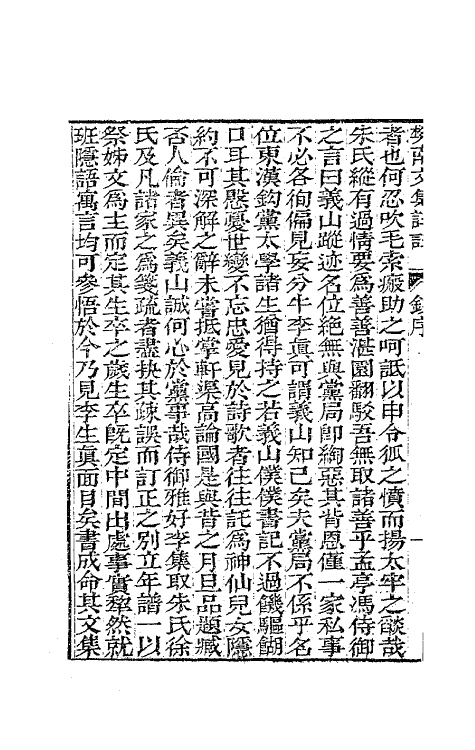 樊南文集詳註 錢序 一
者也何忍吹毛索瘢助之呵詆以申令狐之憤而揚太牢之燄哉
朱氏縱有過情要爲善善湛園翻駁吾無取諸善乎孟亭馮侍御
之言曰義山蹤迹名位絕無與黨局卽綯惡其背恩僅一家私事
不必各徇偏見妄分牛李眞可謂義山知己矣夫黨局不係乎名
位東漢鈎黨太學諸生猶得持之若義山僕僕書記不過饑驅餬
口耳其慇憂世變不忘忠愛見於詩歌者往往託爲神仙兒女隱
約不可深解之辭未嘗抵掌軒渠高論國是與昔之月旦品題臧
否人倫者異矣義山誠何心於黨事哉侍御雅好李集取朱氏徐
氏及凡諸家之爲箋疏者盡抉其疎誤而訂正之別立年譜一以
祭姊文爲主而定其生卒之歲生卒既定中間出處事實犂然就
班隱語寓言均可參悟於今乃見李生眞面目矣書成命其文集